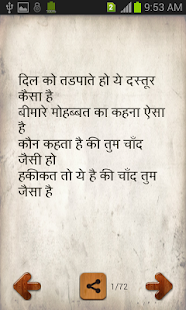 9:53 AM
दिल को तडपाते हो ये दस्तूर
कैसा है
बीमारे मोहब्बत का कहना ऐसा
है
कौन कहता है की तुम चाँद
जैसी हो
हकीकत तो ये है की चाँद तुम
जैसा है
1/72